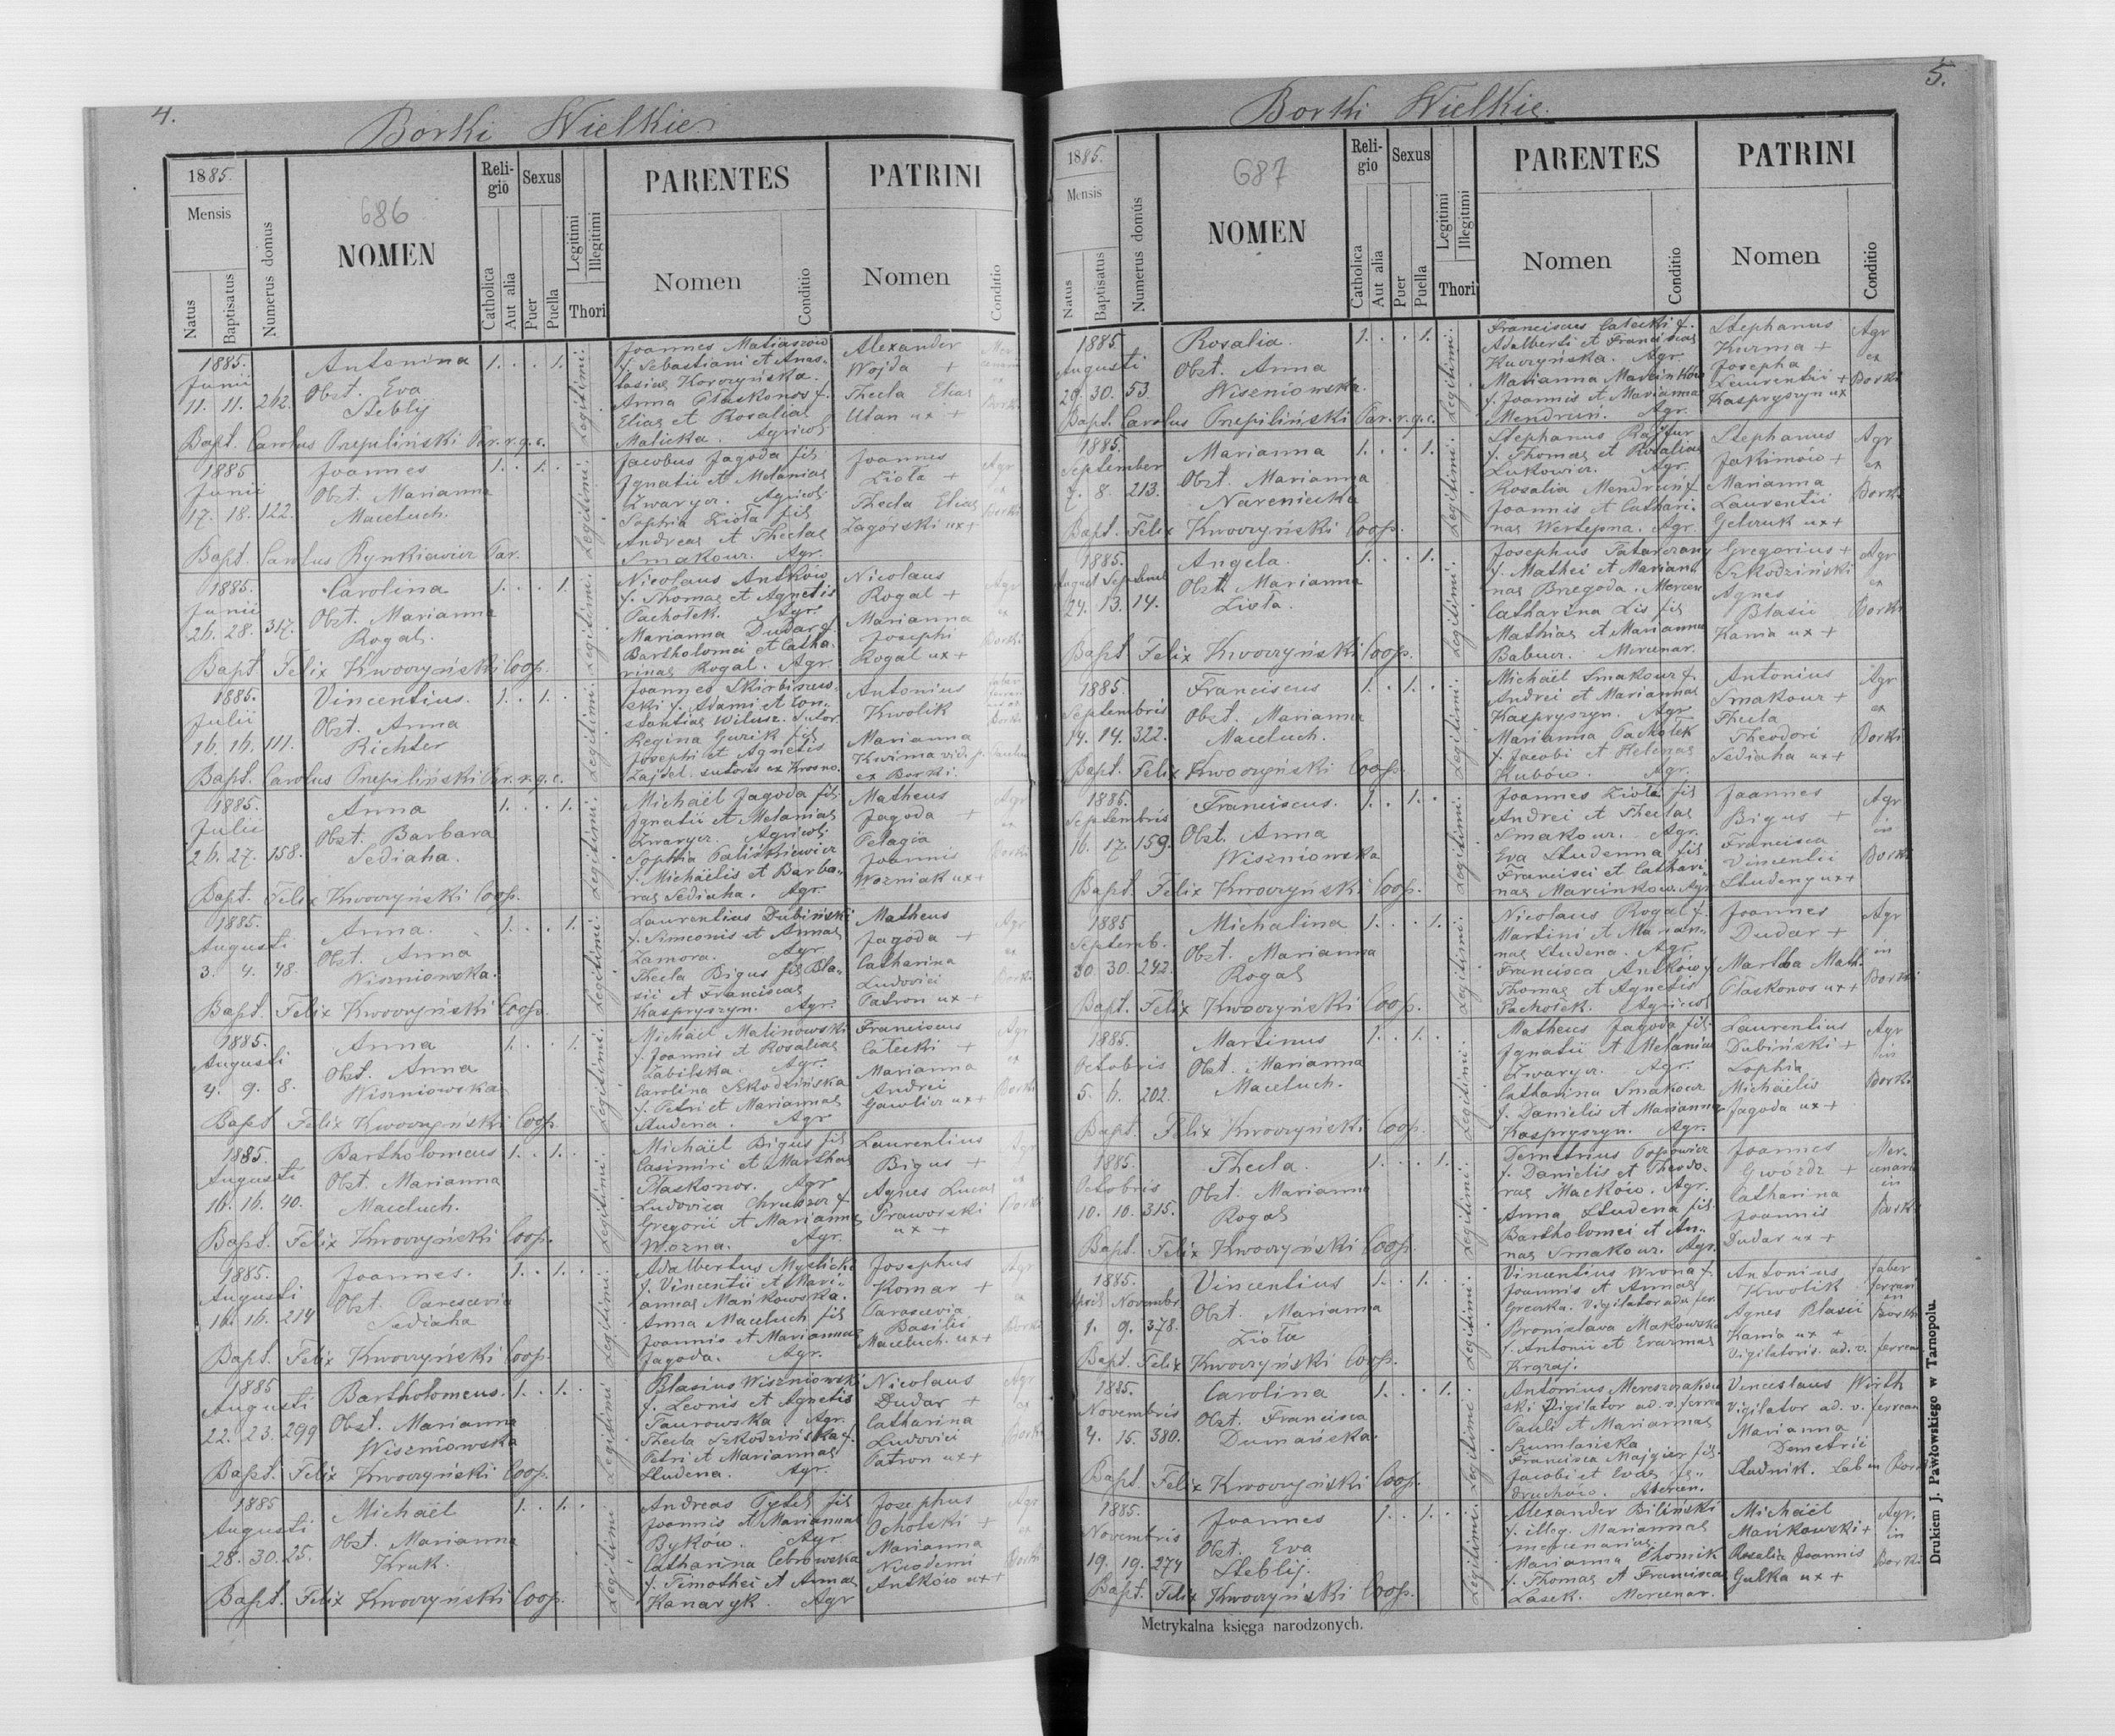 4.
Borki Wielkie
1885.
Mensis
Natus
Baptisatus
Numerus domus
686
NOMEN
Religio
Catholica
Aut alia
Sexus
Puer
Puella
Legitimi
Illegitimi
Thori
PARENTES
Nomen
Conditio
PATRINI
Nomen
Conditio
1885.
Junii
11. 11. 262.
Antonina
Obst. Eva
Steblij
1. . . 1.
Legitimi.
Joannes Matiaszów
f. Sebastiani et Anas-
tasiae Korczyńska.
Anna Płaskonos f.
Eliae et Rosaliae
Malicka. Agricol
Alexander
Wojda +
Thecla Eliae
Ulan ux +
Borki
Bapt. Carolus Przepiliński Par. r. g. c.
1885
Junii
17. 18. 122.
Joannes
Obst. Marianna
Maceluch.
1. . 1. .
Legitimi.
Jacobus Jagoda fil
Ignatii et Melaniae
Zwarycz. Agricol
Sophia Zioła fil
Andreae et Theclae
Smakouz. Agr.
Joannes
Zioła +
Thecla Eliae
Zagórski ux +
Agr
Borki
Bapt. Carolus Rynkiewicz Par.
1885.
Junii
26. 28. 317.
Carolina
Obst. Marianna
Rogal.
1. . . 1.
Legitimi.
Nicolaus Antków
f. Thomae et Agnetis
Pachołek. Agr.
Marianna Dudar f.
Bartholomei et Catha-
rinae Rogal. Agr.
Nicolaus
Rogal +
Marianna
Josephi
Rogal ux +
Agr
ex
Borki
Bapt Felix Kwoczyński Coop.
1885.
Julii
16. 16. 111.
Vincentius.
Obst. Anna
Richter
1. . 1. .
Legitimi.
Joannes Skirbiszew-
ski f. Adami et Con-
stantiae Witusz. Sutor.
Regina Guzik fil
Josephi et Agnetis
Zajdel. sutoris ex Krosno.
Antonius
Kwolik
Marianna
Kuźma vid. p.
ex Borki.
Borki
Bapt. Carolus Przepiliński Par. r. g. c.
1885.
Julii
26. 27. 158.
Anna
Obst. Barbara
Sediaha.
1. . . 1.
Legitimi.
Michaël Jagoda fil.
Ignatii et Melaniae
Zwarycz. Agricol.
Sophia Paliśkiewicz
f. Michäelis et Barba-
rae Sediaha. Agr.
Matheus
Jagoda +
Pelagia
Joannis
Woźniak ux +
Agr
ex
Borki
Bapt. Felix Kwoczyński Coop.
1885.
Augusti
3. 4. 48.
Anna.
Obst. Anna
Wiszniowska.
1. . . 1.
Legitimi.
Laurentius Dubiński
f. Simeonis et Annae
Zamora. Agr.
Thecla Bigus fil Bla-
sii et Franciscae
Kaspryszyn. Agr.
Matheus
Jagoda +
Catharina
Ludovici
Patron ux +
Agr
ex
Borki
Bapt. Felix Kwoczyński Coop.
1885.
Augusti
4. 9. 8.
Anna
Obst. Anna
Wiszniowska
1. . . 1.
Legitimi.
Michaël Malinowski
f. Joannis et Rosaliae
Zabilska. Agr.
Carolina Szkodzińska
f. Petri et Mariannae
Studena. Agr
Franciscus
Całecki +
Marianna
Andrei
Gawlicz ux +
Agr
ex
Borki
Bapt Felix Kwoczyński Coop.
1885.
Augusti
16. 16. 40.
Bartholomeus
Obst. Marianna
Maceluch.
1. . 1. .
Legitimi.
Michaël Bigus fil
Casimiri et Marthae
Płaskonos. Agr
Ludovica Chruszcz f.
Gregorii et Mariannae
Wozna. Agr.
Laurentius
Bigus +
Agnes Lucae
Praworski
ux +
Agr
ex
Borki
Bapt. Felix Kwoczyński Coop.
1885.
Augusti
16. 16. 214
Joannes.
Obst. Parascevia
Sediaha
1. . 1. .
Legitimi.
Adalbertus Myślicki
f. Vincentii et Mari-
annae Mańkowska.
Anna Maceluch fil
Joannis et Mariannae
Jagoda. Agr.
Josephus
Komar +
Parascevia
Basilii
Maceluch. ux +
Agr
ex
Borki
Bapt. Felix Kwoczyński Coop.
1885
Augusti
22. 23. 299
Bartholomeus.
Obst. Marianna
Wiszniowska
1. . 1. .
Legitimi
Blasius Wiszniowski
f. Leonis et Agnetis
Taurowska. Agr.
Thecla Szkodzińska f.
Petri et Mariannae
Studena. Agr.
Nicolaus
Dudar +
Catharina
Ludovici
Patron ux +
Agr
ex
Borki
Bapt. Felix Kwoczyński Coop.
1885
Augusti
28. 30. 25.
Michaël
Obst. Marianna
Kruk.
1. . 1. .
Legitimi
Andreas Tytel fil
Joannis et Mariannae
Byków. Agr
Catharina Cebrowska
f. Timothei et Annae
Kanaryk. Agr
Josephus
Ocholski +
Marianna
Nicodemi
Antków ux +
Agr
ex
Borki
Bapt. Felix Kwoczyński Coop.
5.
Borki Wielkie.
1885.
Mensis
Natus
Baptisatus
Numerus domus
687
NOMEN
Religio
Catholica
Aut alia
Sexus
Puer
Puella
Legitimi
Illegitimi
Thori
PARENTES
Nomen
Conditio
PATRINI
Nomen
Conditio
1885
Augusti
29. 30. 53.
Rosalia.
Obst. Anna
Wiszniowska.
1. . . 1.
Legitimi.
Franciscus Całecki f.
Adalberti et Franciscae
Kuczyńska. Agr
Marianna Marcinków
f. Joannis et Marianna
Mendruń. Agr.
Stephanus
Kuzma +
Josepha
Laurentii +
Kaspryszyn ux
Agr
ex
Borki
Bapt. Carolus Przepiliński Par. r. g. c.
1885.
September
7. 8. 213.
Marianna
Obst. Marianna
Nareniecka
1. . . 1.
Legitimi.
Stephanus Rajfur
f. Thomae et Rosaliae
Łukowicz. Agr.
Rosalia Mendruń f.
Joannis et Cathari-
nae Wertepna. Agr.
Stephanus
Jakimów +
Marianna
Laurentii
Getzuk ux +
Agr
ex
Borki
Bapt. Felix Kwoczyński Coop.
1885.
August Septemb
24. 13. 14.
Angela.
Obst. Marianna
Zioła.
1. . . 1.
Legitimi.
Josephus Tatarczany
f. Mathei et Marian-
nae Brzegoda. Mercen
Catharina Lis fil
Mathiae et Marianna
Babucz. Mercenar.
Gregorius +
Szkodziński
Agnes
Blasii
Kania ux +
Agr
ex
Borki
Bapt Felix Kwoczyński Coop.
1885.
Septembris
14. 14. 322.
Franciscus
Obst. Marianna
Maceluch.
1. . 1. .
Legitimi.
Michaël Smakouz f.
Andrei et Mariannae
Kaspryszyn. Agr
Marianna Pachołek
f. Jacobi et Helenae
Kubów. Agr.
Antonius
Smakouz +
Thecla
Theodori
Sediaha ux +
Agr
ex
Borki
Bapt. Felix Kwoczyński Coop.
1885.
Septembris
16. 17. 159.
Franciscus.
Obst. Anna
Wiszniowska
1. . 1. .
Legitimi.
Joannes Zioła fil
Andrei et Theclae
Smakouz. Agr.
Eva Studenna fil
Francisci et Cathari-
nae Marcinków. Agr
Joannes
Bigus +
Francisca
Vincentii
Studeny ux +
Agr
in
Borki
Bapt. Felix Kwoczyński Coop.
1885
Septemb.
30. 30. 242.
Michalina
Obst. Marianna
Rogal
1. . . 1.
Legitimi.
Nicolaus Rogal f.
Martini et Marian-
nae Studena. Agr.
Francisca Antków f.
Thomae et Agnetis
Pachołek. Agricol
Joannes
Dudar +
Martha Math.
Płaskonos ux +
Agr
in
Borki
Bapt. Felix Kwoczyński Coop.
1885.
Octobris
5. 6. 202.
Martinus
Obst. Marianna
Maceluch.
1. . 1. .
Legitimi.
Matheus Jagoda fil.
Ignatii et Melaniae
Zwarycz. Agr.
Catharina Smakouz
f. Danielis et Marianna
Kaspryszyn. Agr.
Laurentius
Dubiński +
Sophia
Michäelis
Jagoda ux +
Agr
in
Borki
Bapt. Felix Kwoczyński Coop.
1885.
Octobris
10. 10. 315.
Thecla.
Obst. Marianna
Rogal
1. . . 1.
Legitimi.
Demetrius Popowicz
f. Danielis et Theodo-
rae Maćków. Agr.
Anna Studena fil.
Bartholomei et An-
nae Smakouz. Agr.
Joannes
Gwóźdz +
Catharina
Joannis
Dudar ux +
Mer-
cenarii
in
Borki
Bapt. Felix Kwoczyński Coop.
1885.
April Novembr
1. 9. 378.
Vincentius
Obst. Marianna
Zioła
1. . 1. .
Legitimi.
Vincentius Wrona f.
Joannis et Annae
Grecka. Vigilator ad v. fer.
Bronislava Makowska
f. Antonii et Erazmae
Krgzaj.
Antonius
Kwolik
Agnes Blasii
Kania ux +
Vigilatoris. ad. v. ferream
faber
ferrari
in
Borki
Bapt. Felix Kwoczyński Coop.
1885.
Novembris
4. 15. 380.
Carolina
Obst. Francisca
Dumańska.
1. . . 1.
Legitimi.
Antonius Mereszczakow
ski Vigilator ad. v. ferrea
Pauli et Mariannae
Szumlańska
Francisca Majgier fil.
Jacobi et Evae
Venceslaus Wirth
Vigilator ad. v. ferream
Marianna
Demetrii
Studnik. Lab in Borki
Bapt Felix Kwoczyński Coop.
1885.
Novembris
19. 19. 274
Joannes
Obst. Eva
Steblij.
1. . 1. .
Legitimi.
Alexander Biliński
f. illeg. Mariannae
mercenariae
Marianna Chomik
f. Thomae et Francisca
Lasek. Mercenar.
Michaël
Mańkowski +
Rosalia Joannis
Gulka ux +
Agr.
in
Borki
Bapt. Felix Kwoczyński Coop.
Metrykalna księga narodzonych.
Drukiem J. Pawłowskiego w Tarnopolu.